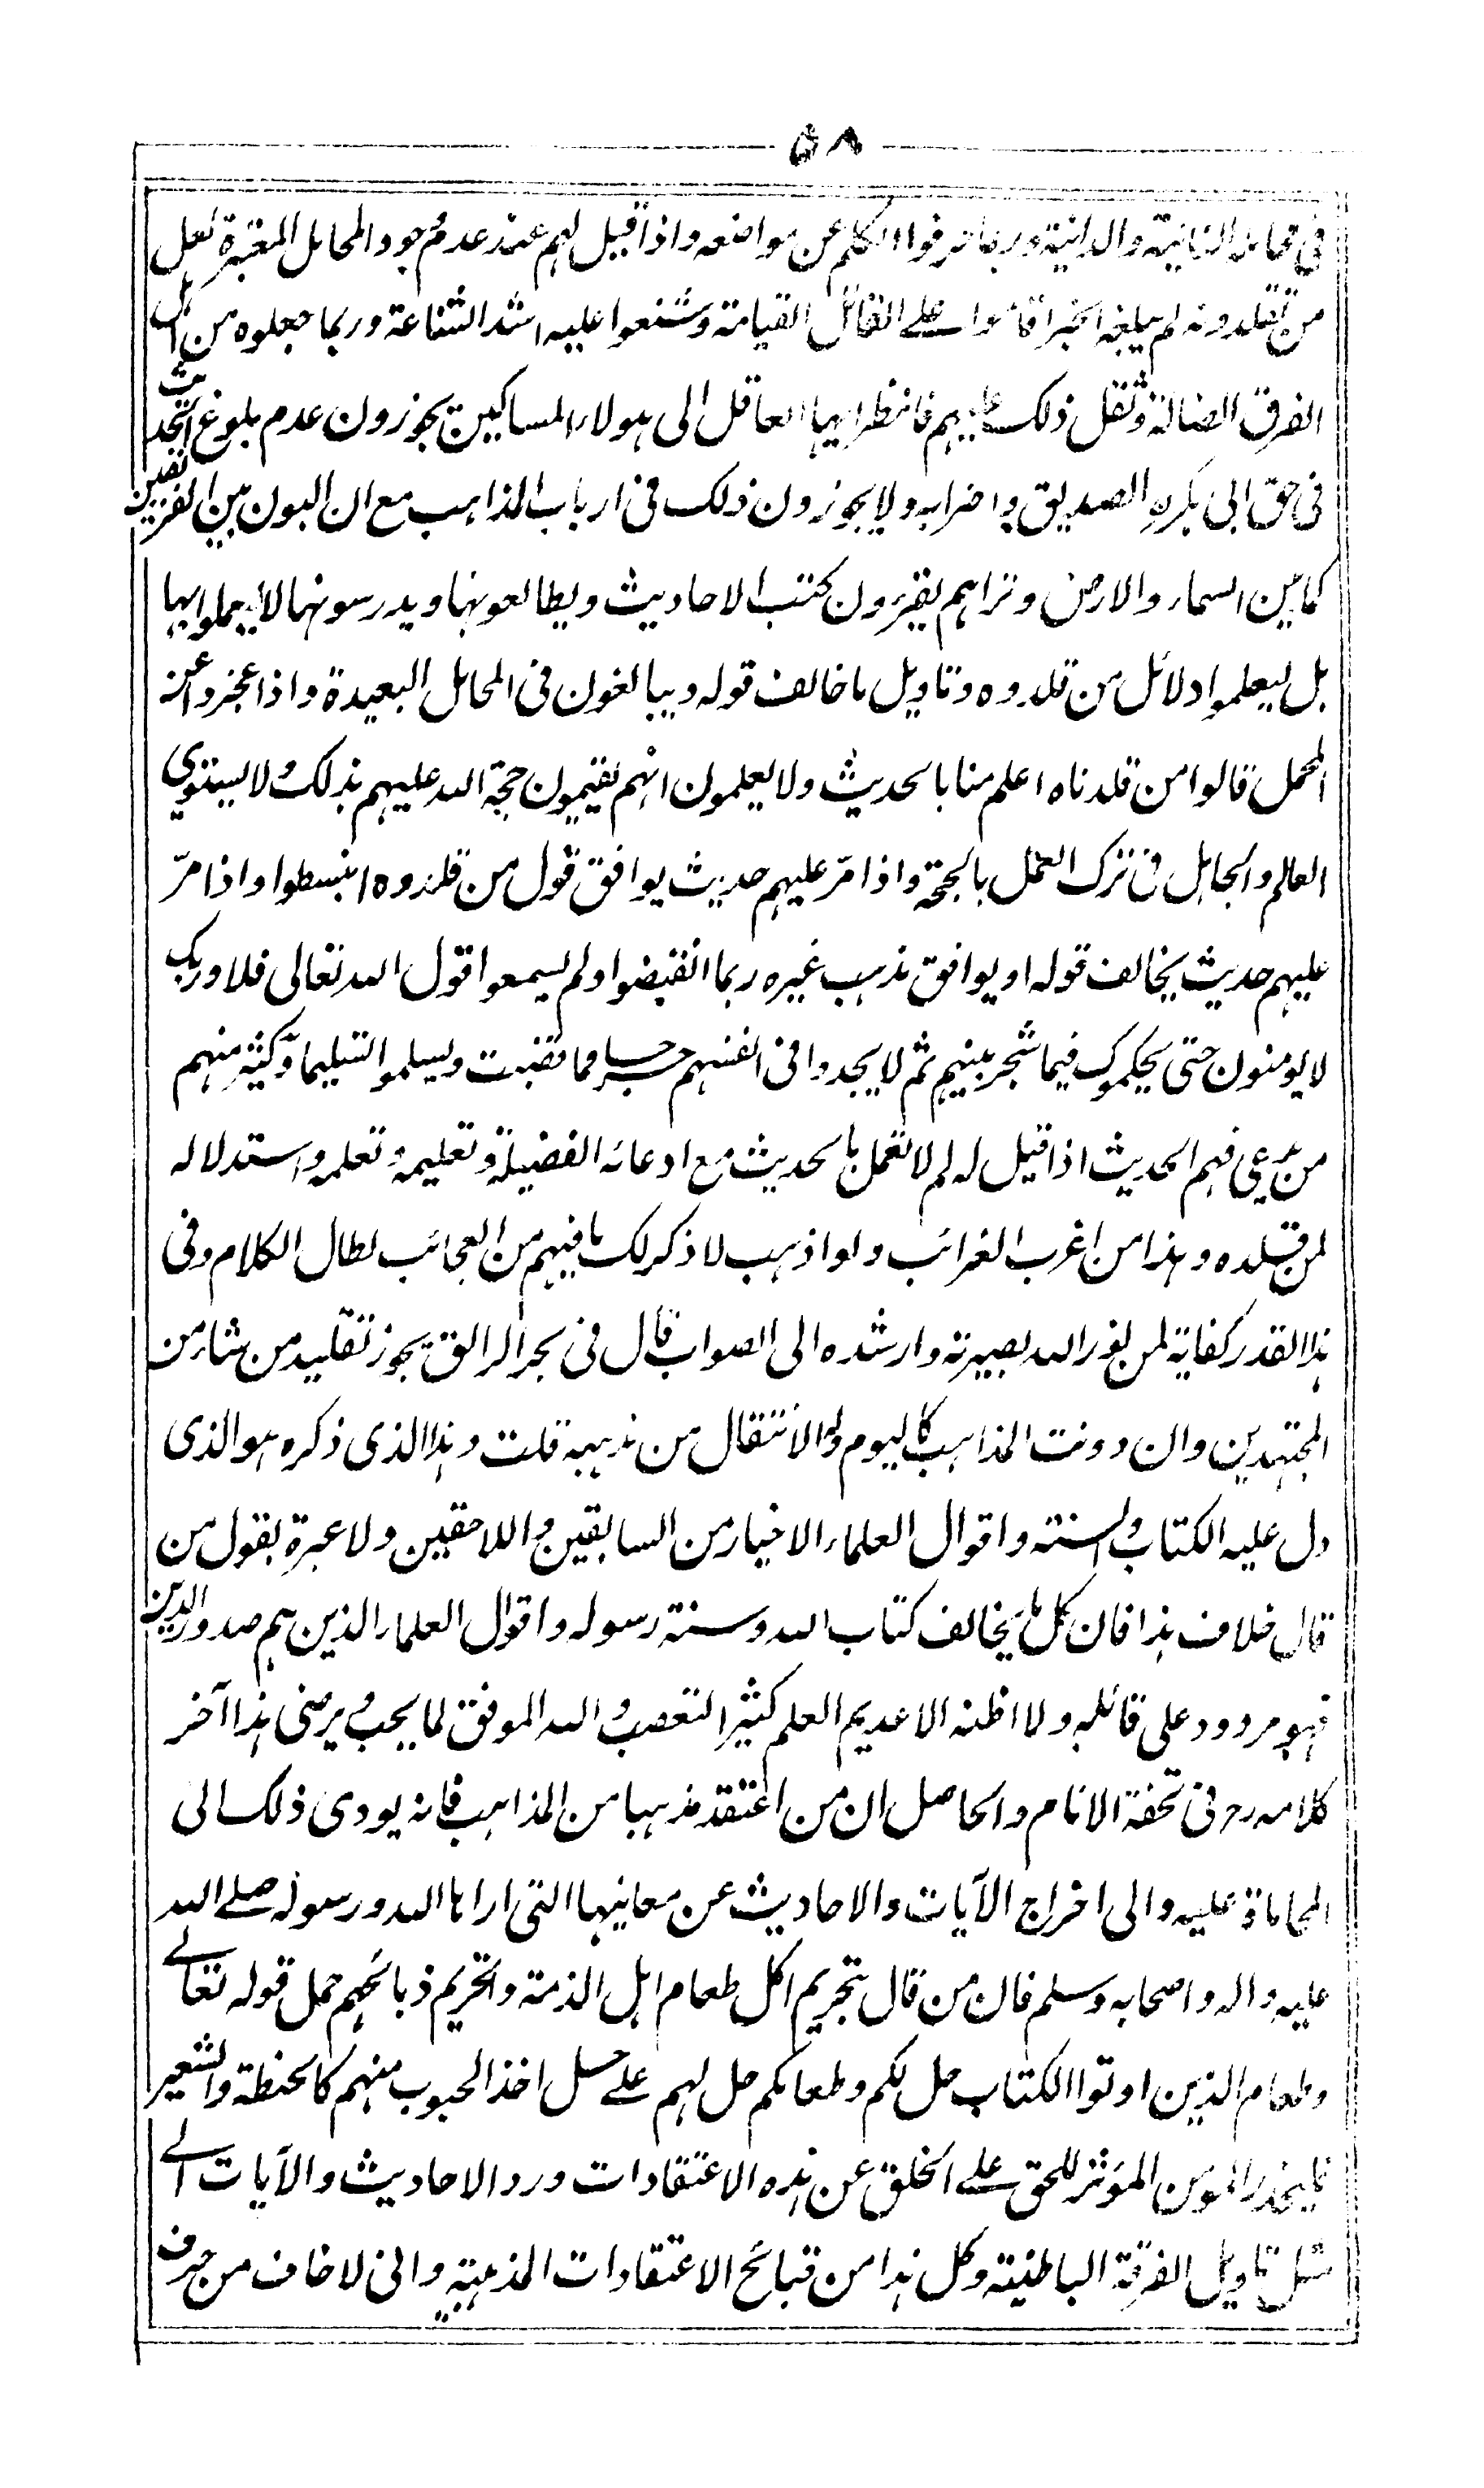 ٥٨
في محامله النائية والدانية وربما حرفوا الكلم عن مواضعه واذا قيل لهم عند عدم وجود المحامل المعتبرة لعل
من تقلدونه لم يبلغه الخبر اقاموا على القائل القيامة وشنعوا عليه اشد الشناعة وربما جعلوه من اهل
الفرق الضالة وثقل ذلك عليهم فانظر ايها العاقل الى هولاء المساكين يجوزون عدم بلوغ الحديث
في حق ابي بكر الصديق واضرابه ولا يجوزون ذلك في ارباب المذاهب مع ان البون بين الفريقين
كما بين السماء والارض وتراهم يقرون كتب الاحاديث ويطالعونها ويدرسونها لا ليعملوا بها
بل ليعلموا دلائل من قلدوه وتاويل ما خالف قوله ويبالغون في المحامل البعيدة واذا عجزوا عن
المحمل قالوا من قلدناه اعلم منا بالحديث ولا يعلمون انهم يقيمون حجة الله عليهم بذلك ولا يستوي
العالم والجاهل في ترك العمل بالحجة واذا مرّ عليهم حديث يوافق قول من قلدوه انبسطوا واذا مرّ
عليهم حديث يخالف قوله او يوافق مذهب غيره ربما انقبضوا ولم يسمعوا قول الله تعالى فلا وربك
لا يومنون حتى يحكموك فيما شجر بينهم ثم لا يجدوا في انفسهم حرجا مما قضيت ويسلموا تسليما وكثير منهم
من يدعي فهم الحديث اذا قيل له لم لا تعمل بالحديث مع ادعائه الفضيلة وتعليمه وتعلمه واستدلاله
لمن قلده وهذا من اغرب الغرائب ولو اذهب لاذكر لك ما فيهم من العجائب لطال الكلام وفي
هذا القدر كفاية لمن نور الله بصيرته وارشده الى الصواب قال في بحر الرائق يجوز تقليد من شاء من
المجتهدين وان دونت المذاهب كاليوم وله الانتقال من مذهبه قلت وهذا الذي ذكره هو الذي
دل عليه الكتاب والسنة واقوال العلماء الاخيار من السابقين واللاحقين ولا عبرة بقول من
قال خلاف هذا فان كل ما يخالف كتاب الله وسنة رسوله واقوال العلماء الذين هم صدور الدين
فهو مردود على قائله ولا اظنه الا عديم العلم كثير التعصب والله الموفق لما يحب ويرضى هذا آخر
كلامه رح في تحفة الانام والحاصل ان من اعتقد مذهبا من المذاهب فانه يودي ذلك الى
المحاماة عليه والى اخراج الآيات والاحاديث عن معانيها التي ارادها الله ورسوله صلى الله
عليه واله واصحابه وسلم فان من قال بتحريم اكل طعام اهل الذمة وتحريم ذبائحهم حمل قوله تعالى
وطعام الذين اوتوا الكتاب حل لكم وطعامكم حل لهم على حل اخذ الحبوب منهم كالحنطة والشعير
فليحذر المومن المؤثر للحق على الخلق عن هذه الاعتقادات ورد الاحاديث والآيات الى
مثل تاويل الفرقة الباطنية وكل هذا من قبائح الاعتقادات المذهبية واني لاخاف من حرف